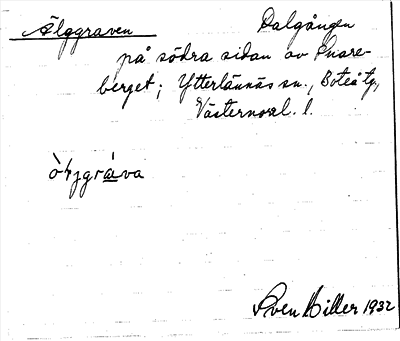 Älggraven Dalgången
på södra sidan av Snare-
berget; Ytterlännäs sn., Boteå tg,
Västernorrl. l.
Sven Hiller 1932